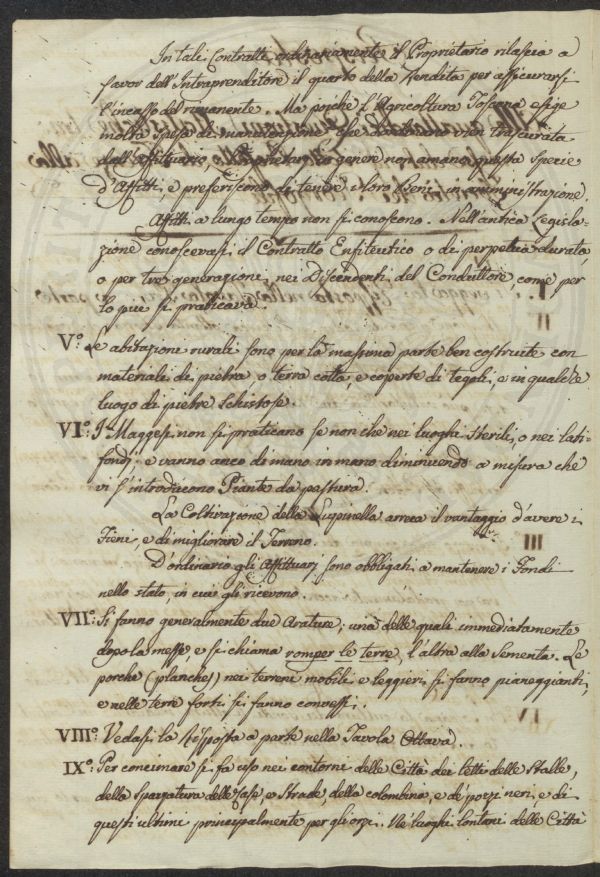 In tali Contratti ordinariamente il Proprietario rilascia a
favor dell'Intraprenditore il quarto della Rendita per assicurarsi
l'incasso del rimanente. Ma poichè l'Agricoltura Toscana esige
molta spesa di manutenzione che d'ordinario vien trascurata
dall'Affittuario, i Proprietarj in genere non amano questa specie
d'Affitti, e preferiscono di tenere i loro Beni in amministrazione.
Affitti a lungo tempo non si conoscono. Nell'antica Legisla-
zione conoscevasi il Contratto Enfiteutico o di perpetua durata
o per tre generazioni nei Discendenti del Conduttore, come per
lo più si praticava.
V.º Le abitazioni rurali sono per la massima parte ben costruite con
materiali di pietra o terra cotta, e coperte di tegoli, e in qualche
luogo di pietre Schistose.
VI.º I Maggesi non si praticano se non che nei luoghi sterili, o nei lati-
fondj, e vanno anco di mano in mano diminuendo a misura che
vi s'introducono Piante da pastura.
La Coltivazione della Lupinella arreca il vantaggio d'avere i
Fieni, e di migliorare il Terreno.
D'ordinario gli Affittuarj sono obbligati a mantenere i Fondi
nello stato, in cui gli ricevono.
VII.º Si fanno generalmente due Arature; una delle quali immediatamente
dopo la messe, e si chiama romper le terre, l'altra alla Sementa. Le
porche (planches) nei terreni mobili e leggieri si fanno pianeggianti,
e nelle terre forti si fanno convessi.
VIII.º Vedasi la Risposta a parte nella Tavola Ottava.
IX.º Per concimare si fa uso nei contorni delle Città dei letti delle Stalle,
della spazzatura delle Case, e Strade, della colombina, e de' pozzi neri, e di
questi ultimi principalmente per gli orzi. Ne' luoghi lontani delle Città